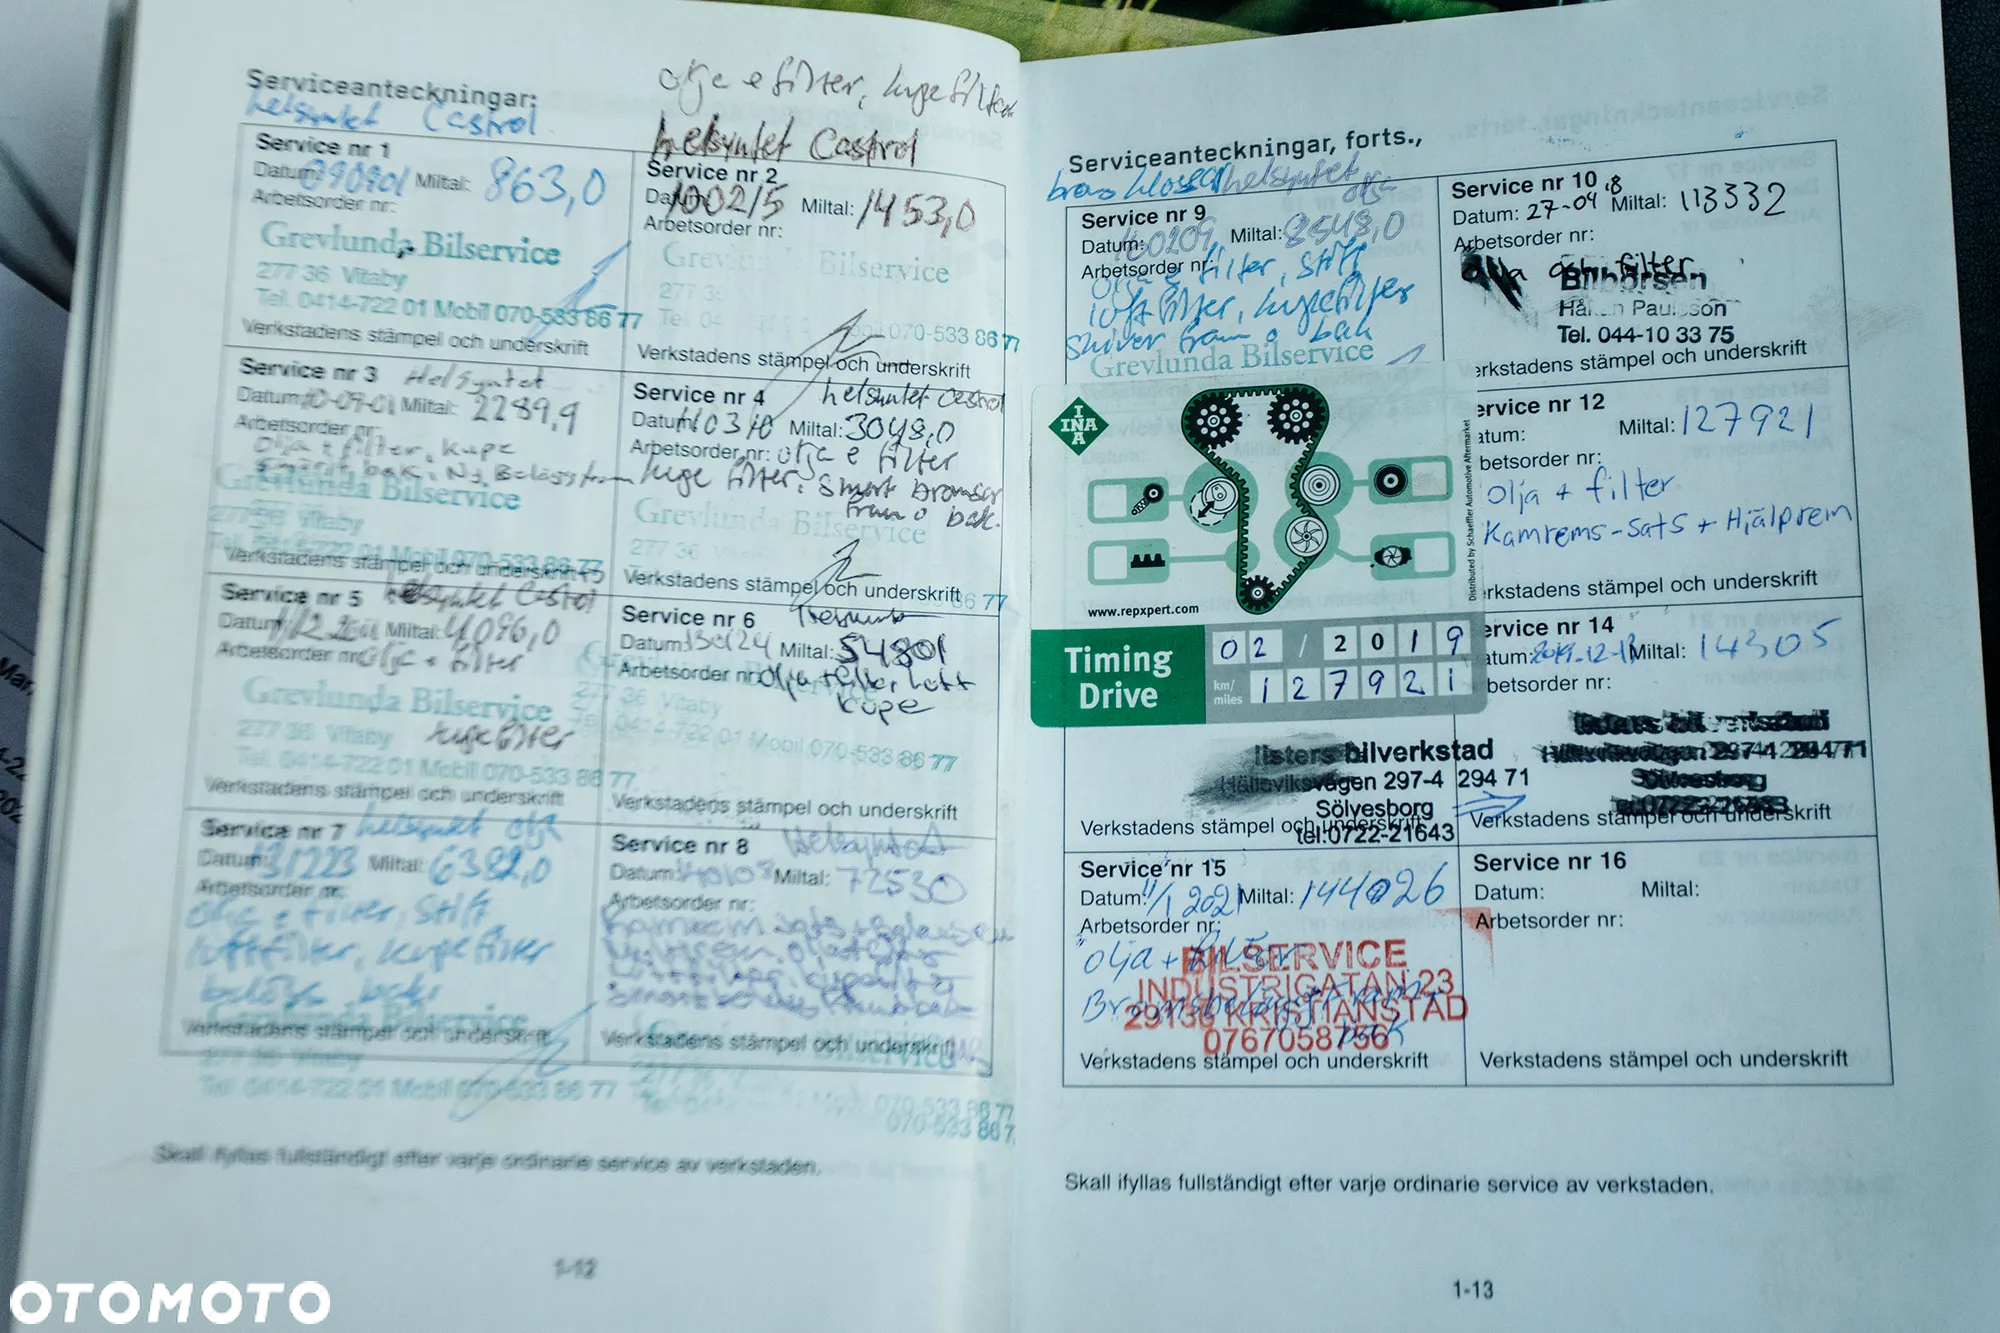 Serviceanteckningar:
helsyntet Castrol
Service nr 1
Datum: 090901 Miltal: 863,0
Arbetsorder nr:
Grevlunda Bilservice
277 36 Vitaby
Tel. 0414-722 01 Mobil 070-533 86 77
Verkstadens stämpel och underskrift
olja e filter, kupefilter
helsyntet Castrol
Service nr 2
Datum: 100215 Miltal: 1453,0
Arbetsorder nr:
Bilservice
070-533 86 77
Verkstadens stämpel och underskrift
Service nr 3 Helsyntet
Datum: 10-09-01 Miltal: 2289,9
Arbetsorder nr:
olja + filter, kupe
Grevlunda Bilservice
Verkstadens stämpel och underskrift
Service nr 4 helsyntet Castrol
Datum: 110310 Miltal: 3048,0
Arbetsorder nr: olja e filter
kupe filter, smort bromsar
fram o bak.
Grevlunda Bilservice
277 36
Verkstadens stämpel och underskrift
Service nr 5 helsyntet Castrol
Datum: Miltal: 4096,0
Arbetsorder nr: olja + filter
Grevlunda Bilservice
277 36 Vitaby kupefilter
Tel. 0414-722 01 Mobil 070-533 86 77
Verkstadens stämpel och underskrift
Service nr 6
Datum: 130424 Miltal: 54801
Arbetsorder nr: olja + filter, luft
kupe
277 36 Vitaby
Tel. 0414-722 01 Mobil 070-533 86 77
Verkstadens stämpel och underskrift
Service nr 7 helsyntet olja
Datum: 131223 Miltal: 6382,0
Arbetsorder nr:
olja e filter, stift
luftfilter, kupefilter
Grevlunda Bilservice
Verkstadens stämpel och underskrift
277 36 Vitaby
Tel. 0414-722 01 Mobil 070-533 86 77
Service nr 8 Helsyntet
Datum: Miltal: 72530
Arbetsorder nr:
Verkstadens stämpel och underskrift
070-533 86 77
Skall ifyllas fullständigt efter varje ordinarie service av verkstaden.
1-12
Serviceanteckningar, forts.,
helsyntet
olja
Service nr 9
Datum: 160209 Miltal: 8548,0
Arbetsorder nr:
olja e filter, stift
luftfilter, kupefilter
skivor fram o bak
Grevlunda Bilservice
Service nr 10
Datum: 27-04 18 Miltal: 113332
Arbetsorder nr:
olja och filter
Bilbörsen
Håkan Paulsson
Tel. 044-10 33 75
erkstadens stämpel och underskrift
INA
www.repxpert.com
Distributed by Schaeffler Automotive Aftermarket
Timing
Drive
02 / 2019
km/
miles
127921
ervice nr 12
atum: Miltal: 127921
betsorder nr:
Olja + filter
Kamrems-sats + Hjälprem
erkstadens stämpel och underskrift
listers bilverkstad
Hälleviksvägen 297-4 294 71
Sölvesborg
tel:0722-21643
Verkstadens stämpel och underskrift
ervice nr 14
atum: 2019-12-13 Miltal: 14305
betsorder nr:
listers bilverkstad
Hälleviksvägen 297-4 294 71
Sölvesborg
Verkstadens stämpel och underskrift
Service nr 15
Datum: 11/1 2021 Miltal: 144026
Arbetsorder nr:
olja + filter
Bromsbelägg fram
bak
BILSERVICE
INDUSTRIGATAN 23
29136 KRISTIANSTAD
0767058756
Verkstadens stämpel och underskrift
Service nr 16
Datum: Miltal:
Arbetsorder nr:
Verkstadens stämpel och underskrift
Skall ifyllas fullständigt efter varje ordinarie service av verkstaden.
1-13
OTOMOTO